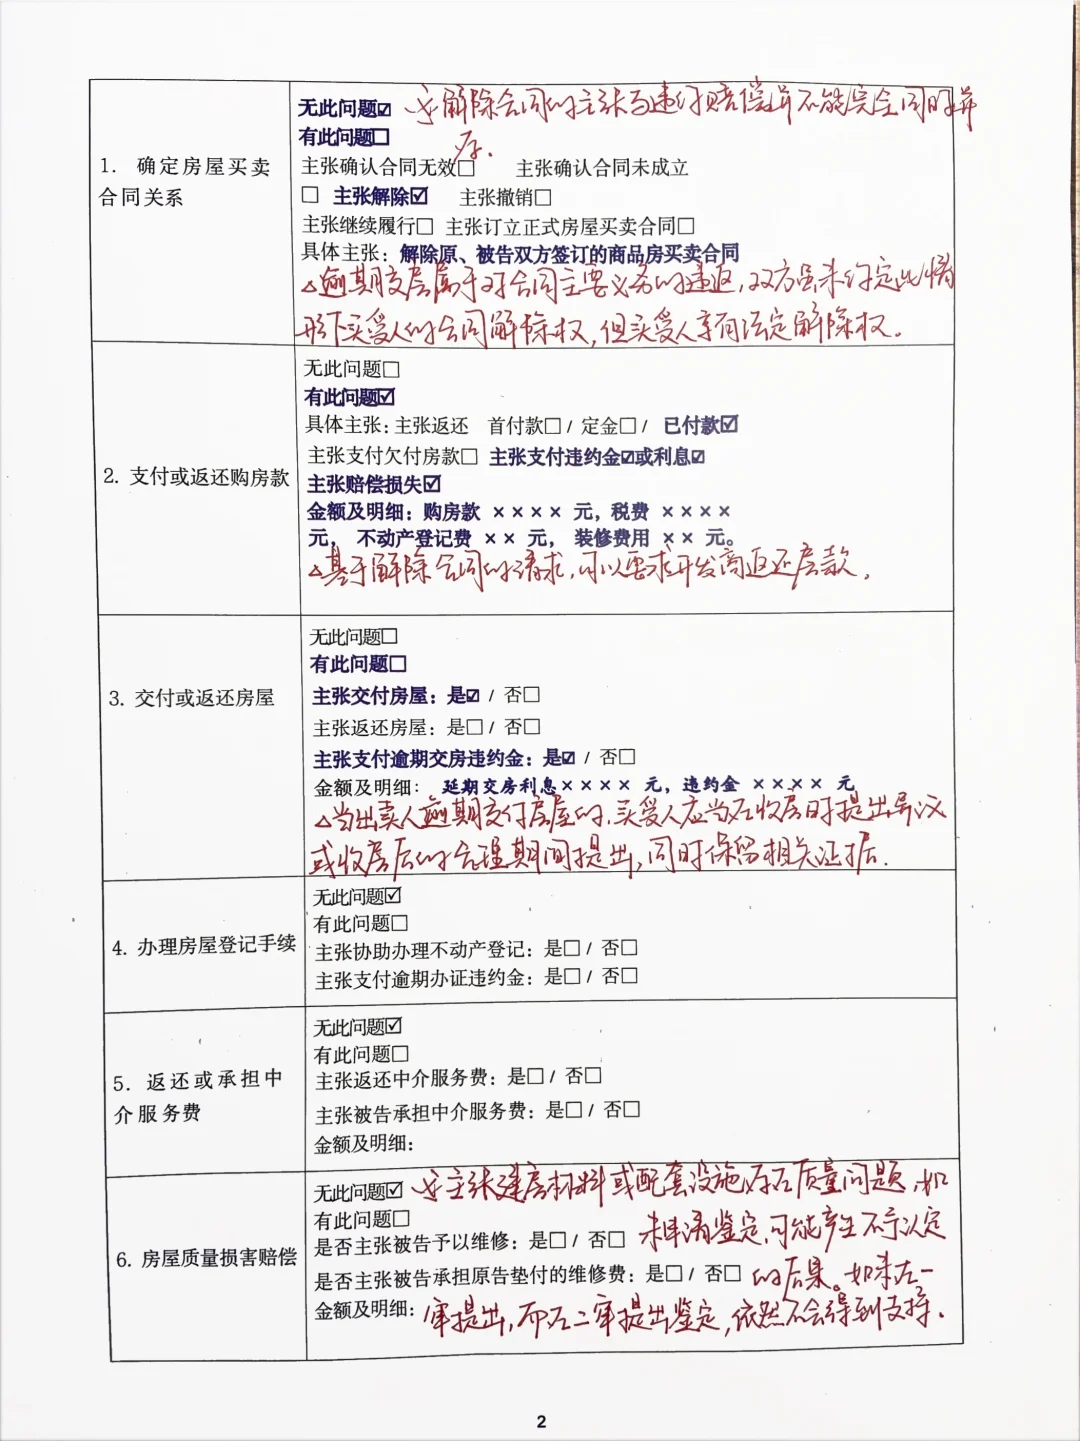 1. 确定房屋买卖
合同关系
无此问题☑ 解除合同的主张与违约赔偿并不能完全同时并
存.
有此问题☐
主张确认合同无效☐ 主张确认合同未成立
☐ 主张解除☑ 主张撤销☐
主张继续履行☐ 主张订立正式房屋买卖合同☐
具体主张：解除原、被告双方签订的商品房买卖合同
△逾期交房属于对合同主要义务的违返,双方虽未约定此情
形下买受人的合同解除权,但买受人享有法定解除权。
2. 支付或返还购房款
无此问题☐
有此问题☑
具体主张：主张返还 首付款☐ / 定金☐ / 已付款☑
主张支付欠付房款☐ 主张支付违约金☑或利息☑
主张赔偿损失☑
金额及明细：购房款 ×××× 元，税费 ××××
元， 不动产登记费 ×× 元， 装修费用 ×× 元。
△基于解除合同的请求,可以要求开发商返还房款.
3. 交付或返还房屋
无此问题☐
有此问题☐
主张交付房屋：是☑ / 否☐
主张返还房屋：是☐ / 否☐
主张支付逾期交房违约金：是☑ / 否☐
金额及明细： 延期交房利息×××× 元，违约金 ×××× 元
△当出卖人逾期交付房屋的,买受人应当在收房时提出异议
或收房后的合理期间提出,同时保留相关证据.
4. 办理房屋登记手续
无此问题☑
有此问题☐
主张协助办理不动产登记：是☐ / 否☐
主张支付逾期办证违约金：是☐ / 否☐
5. 返还或承担中
介服务费
无此问题☑
有此问题☐
主张返还中介服务费：是☐ / 否☐
主张被告承担中介服务费：是☐ / 否☐
金额及明细：
6. 房屋质量损害赔偿
无此问题☑ 主张建房材料或配套设施存在质量问题,如
有此问题☐
是否主张被告予以维修：是☐ / 否☐ 未申请鉴定,可能产生不予认定
是否主张被告承担原告垫付的维修费：是☐ / 否☐ 的后果。如未在一
金额及明细：审提出,而在二审提出鉴定,依然不会得到支持.
2